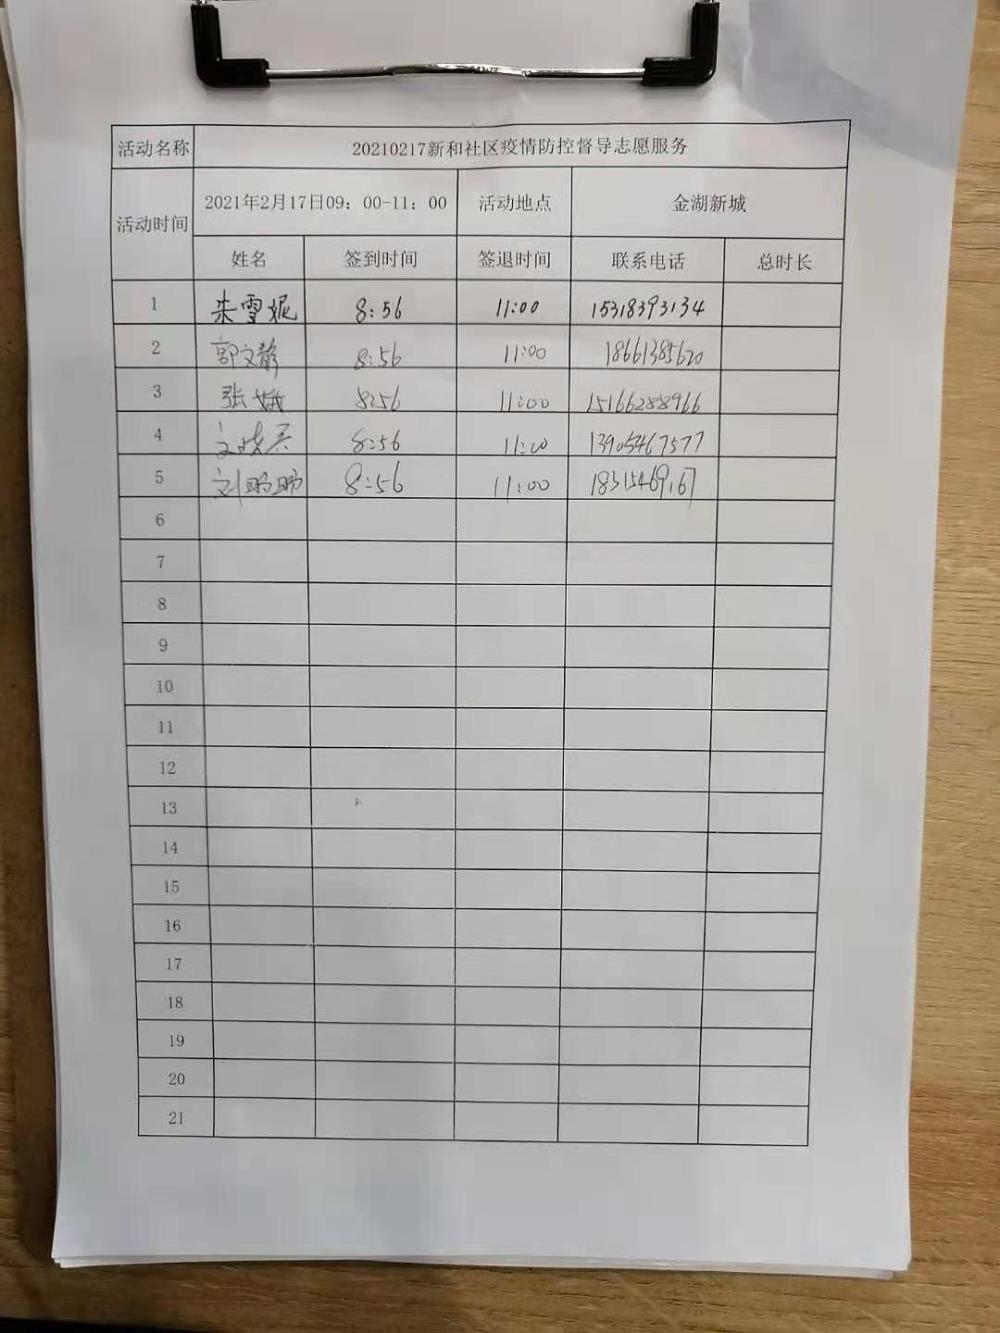 活动名称 20210217新和社区疫情防控督导志愿服务
活动时间 2021年2月17日09：00-11：00 活动地点 金湖新城
姓名 签到时间 签退时间 联系电话 总时长
1 朱雪妮 8:56 11:00 15318393134
2 郭文静 8:56 11:00 18661385620
3 张 8:56 11:00 15166288966
4 8:56 11:00 13905467577
5 刘盼盼 8:56 11:00
6
7
8
9
10
11
12
13
14
15
16
17
18
19
20
21